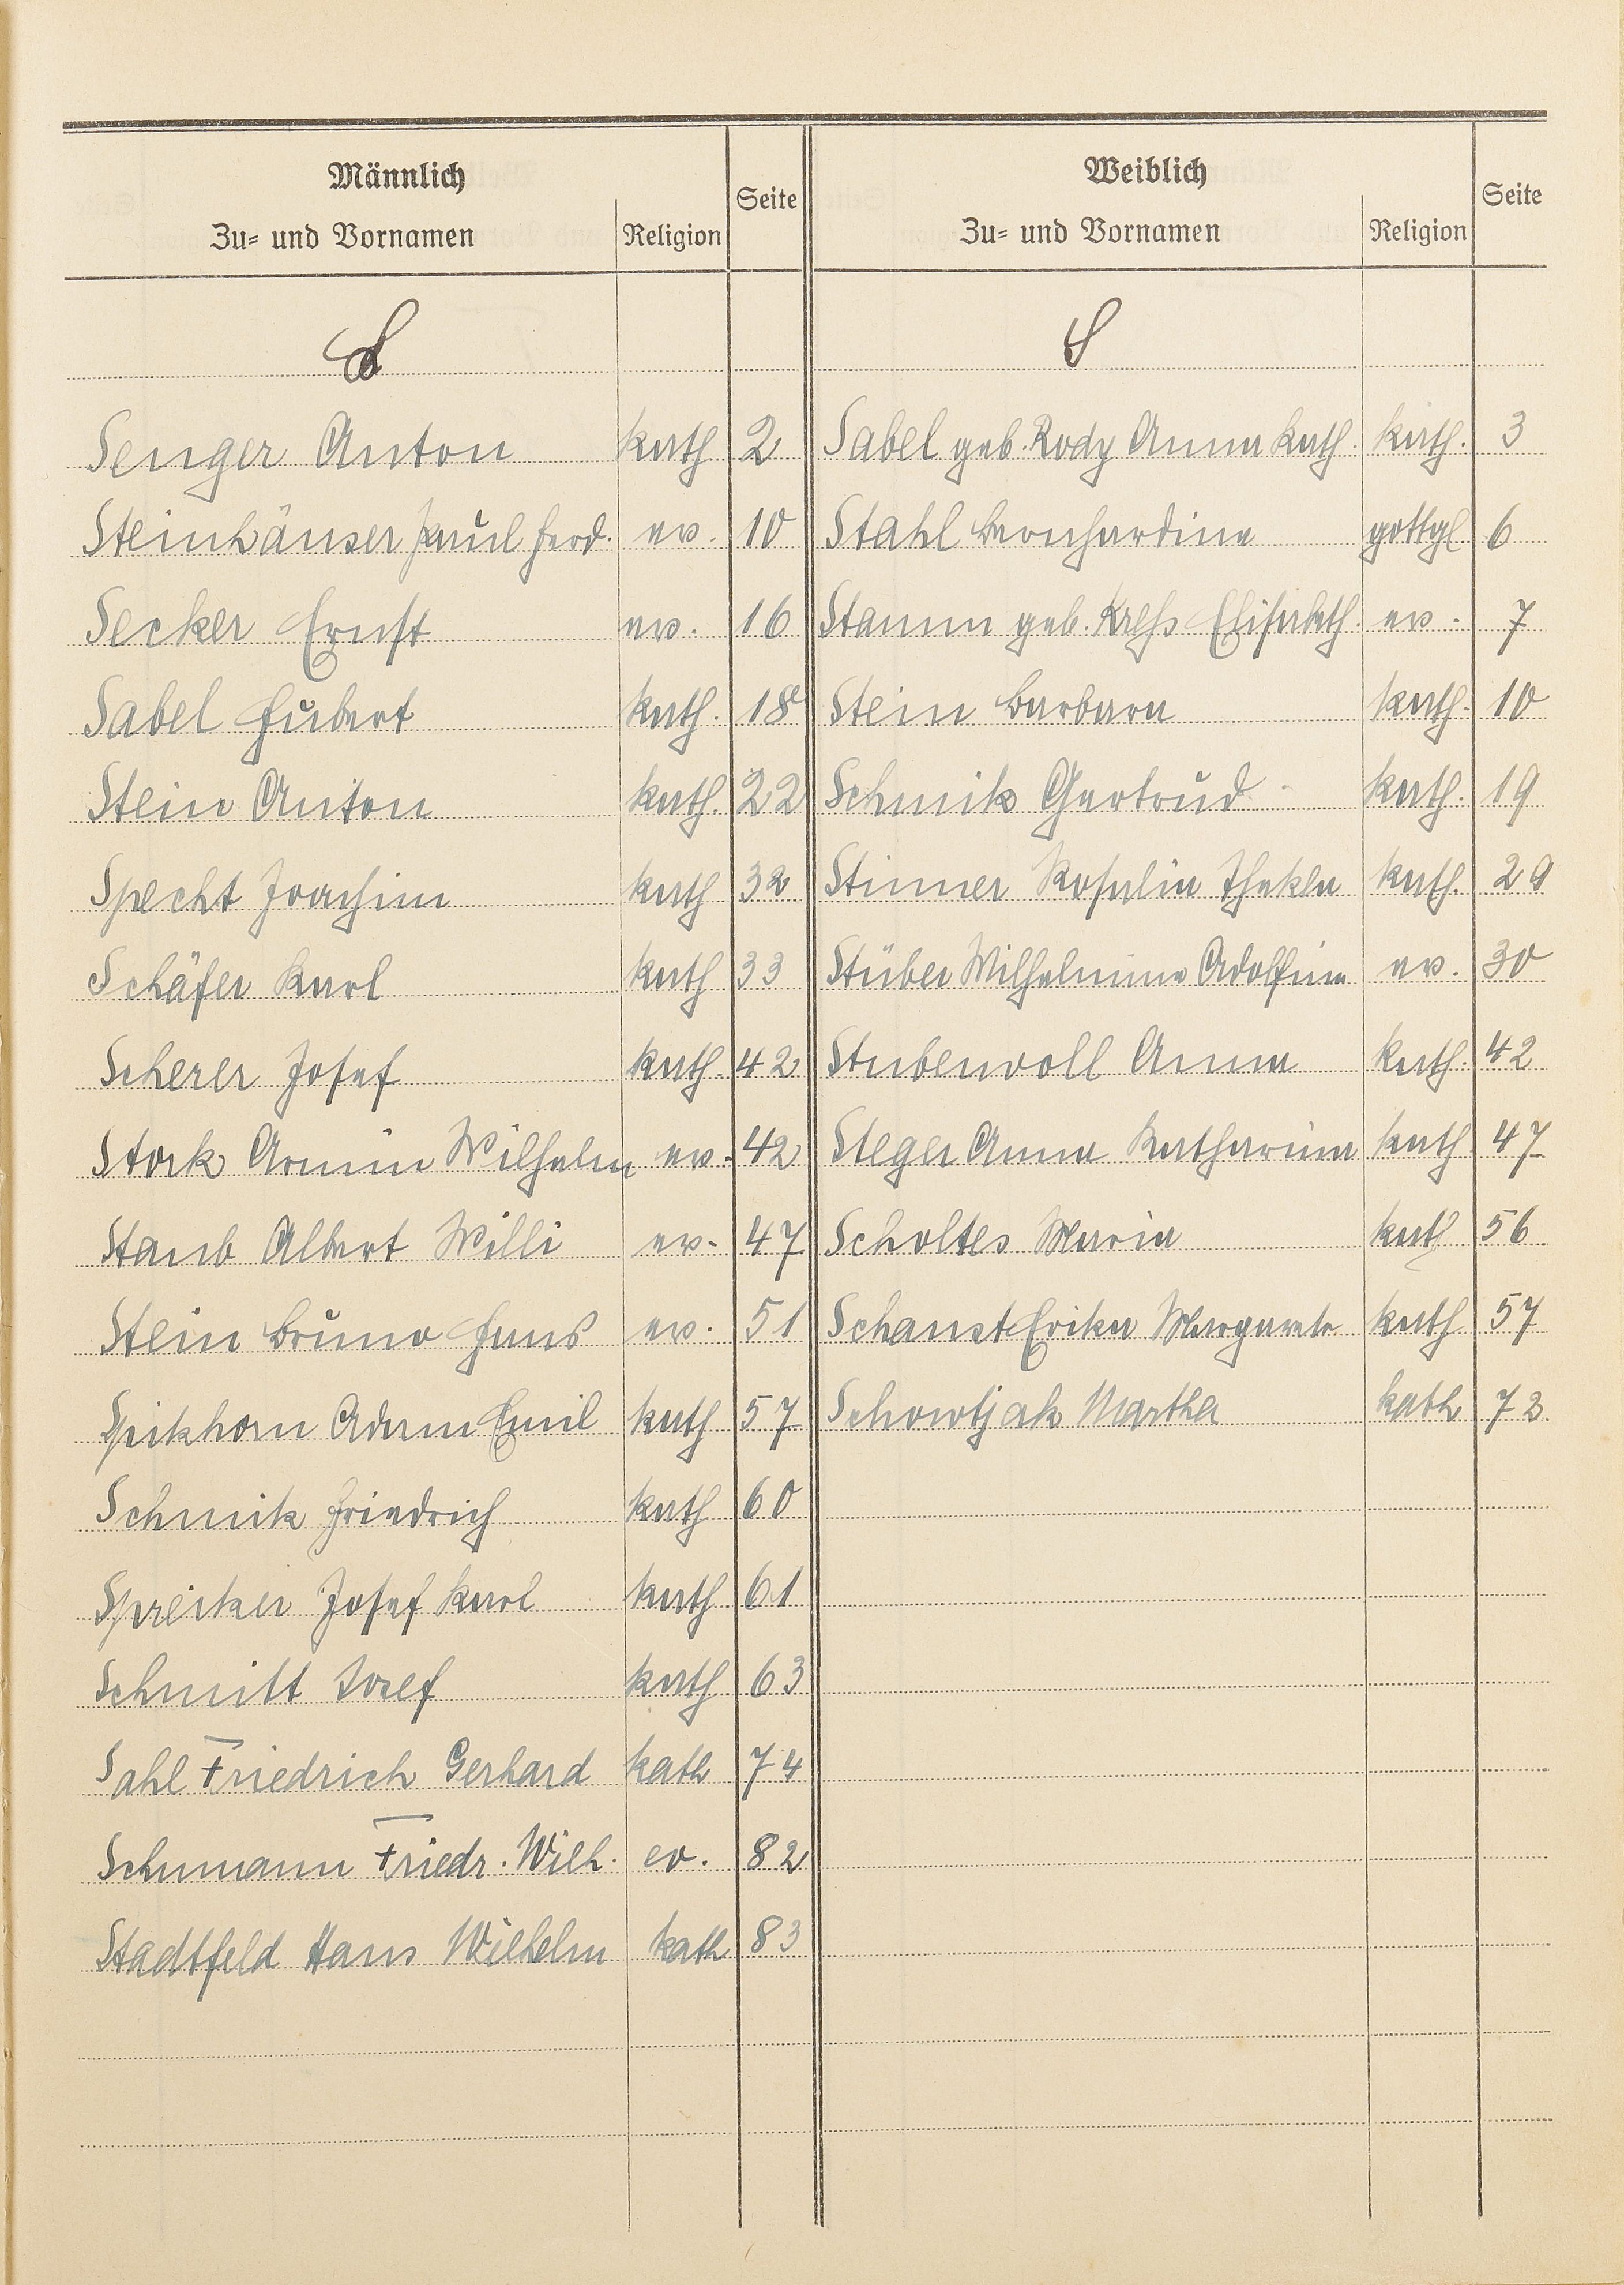 Männlich
Zu- und Vornamen Religion Seite
Weiblich
Zu- und Vornamen Religion Seite
S S
Senger Anton kath 2 Sabel geb. Rody Anna Kath. kath. 3
Steinhäuser Paul Ferd. ev. 10 Stahl Bernhardine gottgl. 6
Secker Ernst ev. 16 Stamm geb. Elisabeth ev. 7
Sabel Hubert kath. 18 Stein Barbara kath. 10
Stein Anton kath. 22 Schmitz Gertrud kath. 19
Specht Joachim kath 32 Stinner Rosalia Thekla kath. 29
Schäfer Karl kath 33 Stüber Wilhelmine Adolfine ev. 30
Scherer Josef kath. 42 Stubenvoll Anna kath. 42
Stork Armin Wilhelm ev. 42 Steger Anna Katharina kath 47
Staub Albert Willi ev. 47 Scholtes Maria kath 56
Stein Bruno Hans ev. 51 Schanst Erika Margarete kath 57
Adam Emil kath 57 Martha kath 73
Schmitz Friedrich kath 60
Josef Karl kath 61
Schmitt Josef kath 63
Sahl Friedrich Gerhard kath 74
Schumann Friedr. Wilh. ev. 82
Stadtfeld Hans Wilhelm kath 83